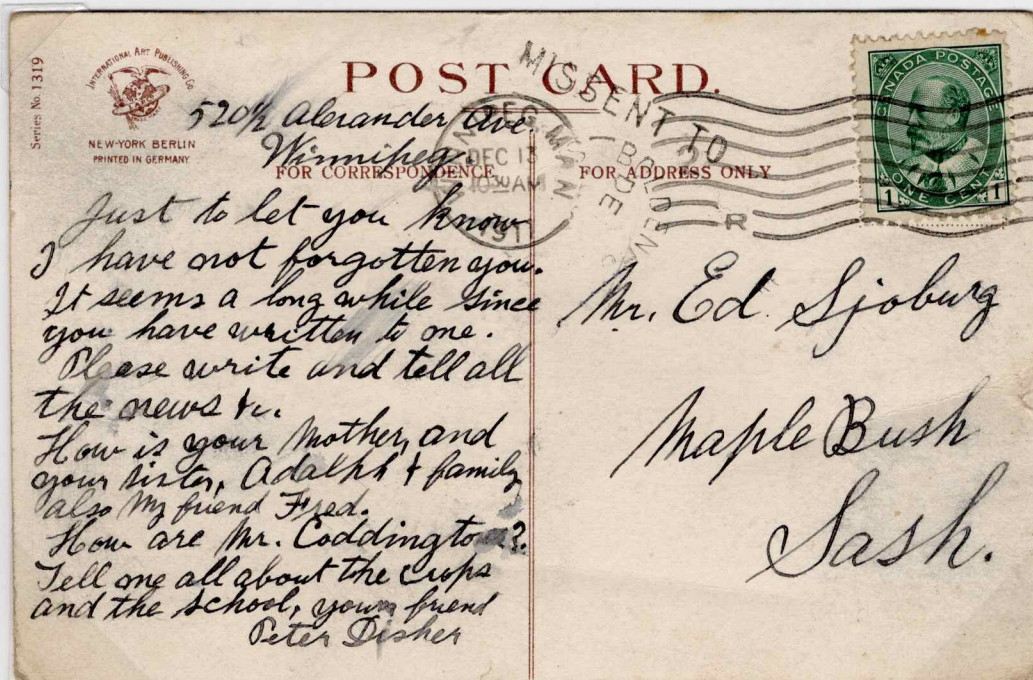 Series No. 1319
INTERNATIONAL ART PUBLISHING Co
NEW-YORK BERLIN
PRINTED IN GERMANY
POST CARD.
MISSENT TO
DEC 13
10 30 AM
MAN
191
R
CANADA POSTAGE
1 ONE CENT 1
520½ Alexander Ave.
Winnipeg.
FOR CORRESPONDENCE
FOR ADDRESS ONLY
Just to let you know
I have not forgotten you.
It seems a long while since
you have written to me.
Please write and tell all
the news &c.
How is your Mother, and
your sister, Adalph & family
also My friend Fred.
How are Mr. Coddingtons?
Tell me all about the crops
and the school, your friend
Peter Disher
Mr. Ed. Sjoburg
Maple Bush
Sash.